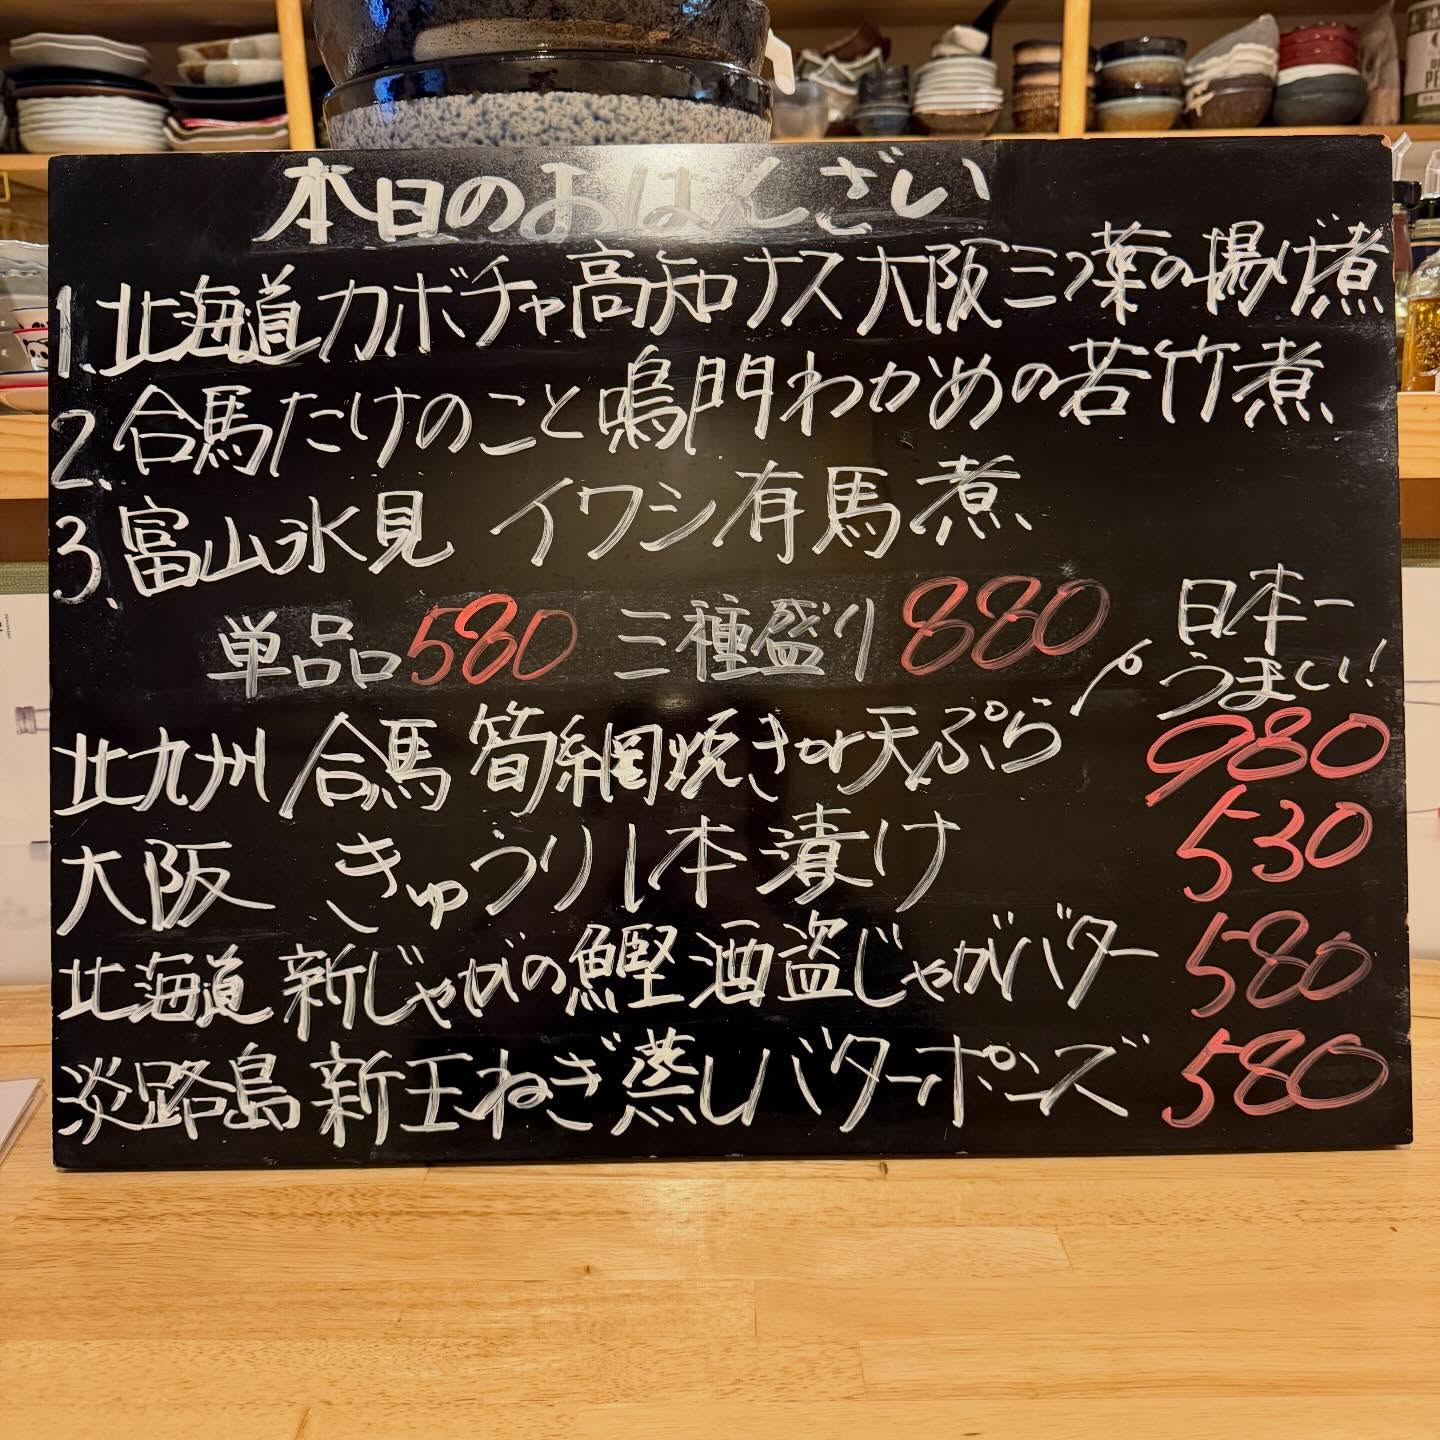 本日のおばんざい
1.北海道カボチャ高知ナス大阪三つ葉の揚げ煮
2.合馬たけのこと鳴門わかめの若竹煮
3.富山氷見 イワシ有馬煮
単品580 三種盛り880
日本一
うまい!
北九州 合馬 筍網焼きor天ぷら 980
大阪 きゅうり1本漬け 530
北海道 新じゃがの鰹酒盗じゃがバター 580
淡路島 新玉ねぎ蒸しバターポンズ 580